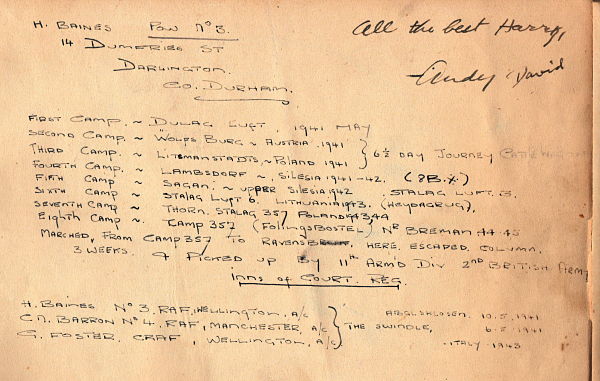 H. BAINES POW Nº 3.
14 DUMFRIES ST
DARLINGTON.
CO. DURHAM.
All the best Harry,
Andy David
FIRST CAMP ~ DULAG LUFT, 1941 MAY
SECOND CAMP ~ WOLFSBURG ~ AUSTRIA 1941
THIRD CAMP. ~ LITSMANSTADT ~ POLAND 1941 } 6½ DAY JOURNEY
FOURTH CAMP. ~ LAMBSDORF ~ SILESIA 1941-42. (8B.)
FIFTH CAMP ~ SAGAN. ~ UPPER SILESIA 1942. STALAG LUFT. 3.
SIXTH CAMP ~ STALAG LUFT 6. LITHUANIA 1943. (HEYDAGRUG),
SEVENTH CAMP ~ THORN. STALAG 357 POLAND 1943 44
EIGHTH CAMP ~ CAMP 357 (FOLLINGSBOSTEL) NR BREMAN 44-45
MARCHED, FROM CAMP 357 TO HERE, ESCAPED, COLUMN.
3 WEEKS. & PICKED UP BY 11TH ARM'D DIV 2ND BRITISH ARMY
INNS OF COURT REG.
H. BAINES Nº 3. RAF, WELLINGTON, A/C } 10.5.1941
BARRON Nº 4. RAF, MANCHESTER, A/C } THE SWINDLE, 1941
G. FOSTER. CRAF, WELLINGTON, A/C } ITALY 1943